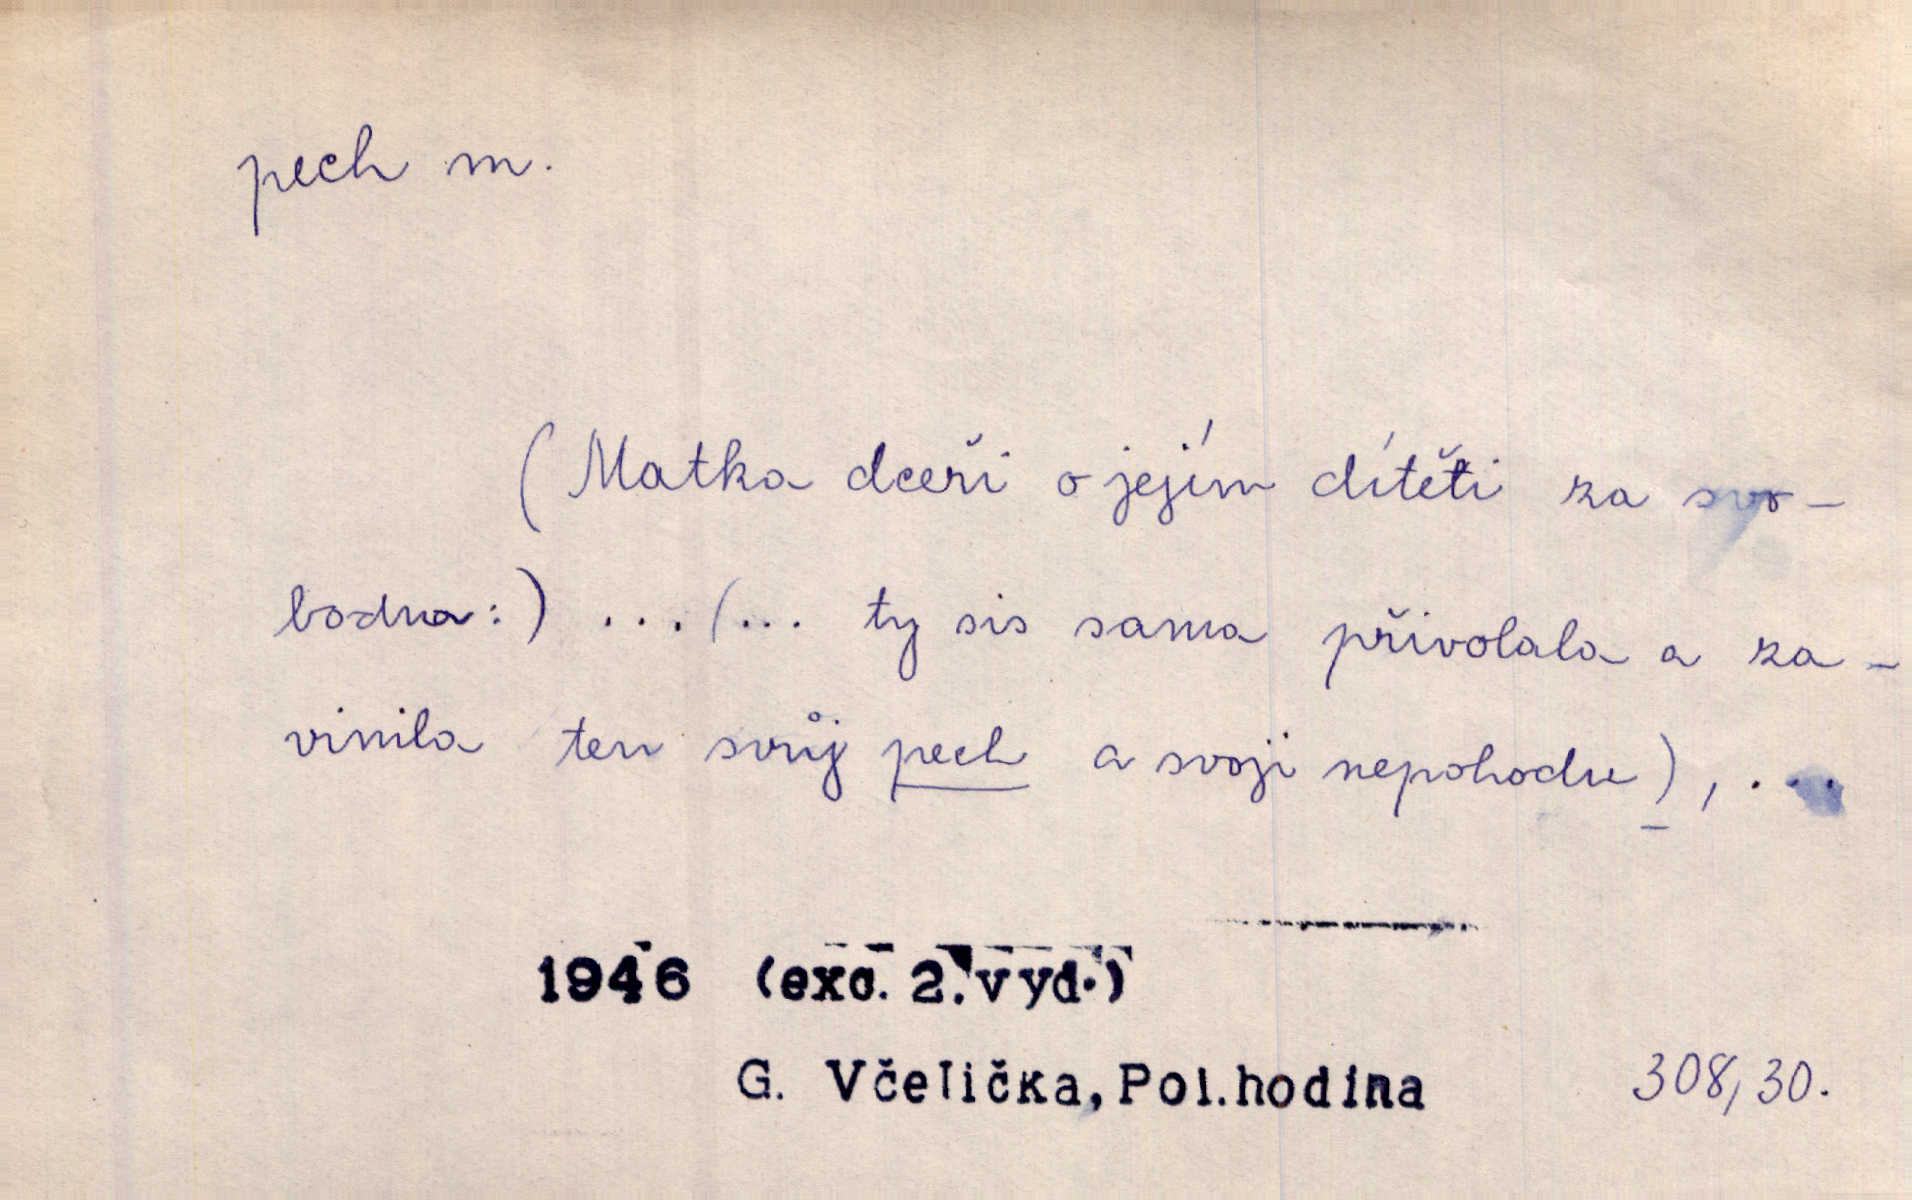 pech m.
(Matka dceři o jejím dítěti za svo-
bodna:) ... (... ty sis sama přivolala a za-
vinila ten svůj pech a svoji nepohodu), ...
1946 (exc. 2. vyd.)
G. Včelička, Pol. hodina 308, 30.